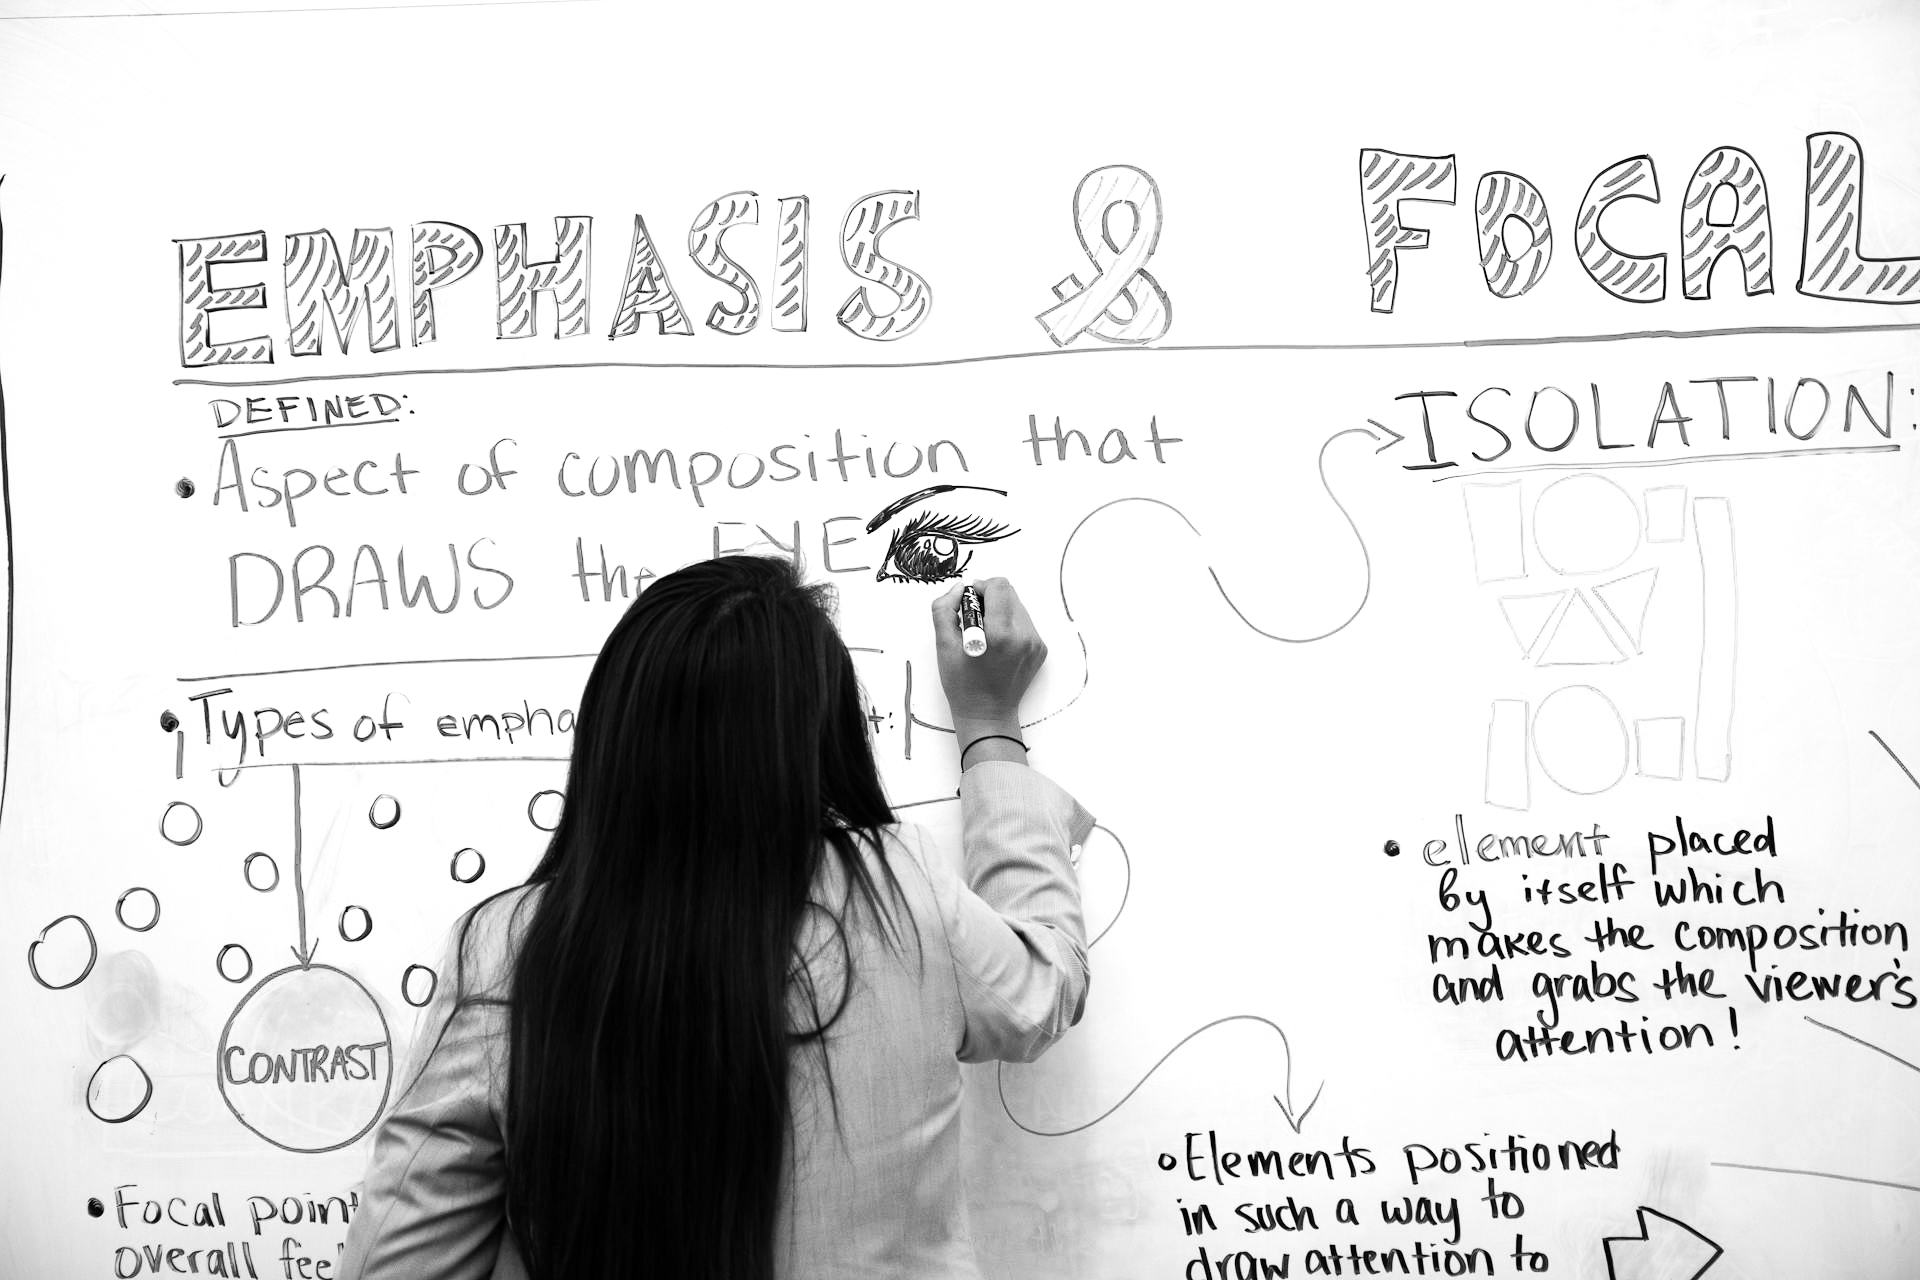 EMPHASIS & FOCAL
DEFINED:
• Aspect of composition that
DRAWS the EYE
• Types of empha
CONTRAST
• Focal point
overall fee
ISOLATION:
• element placed
by itself which
makes the composition
and grabs the viewer's
attention!
• Elements positioned
in such a way to
draw attention to